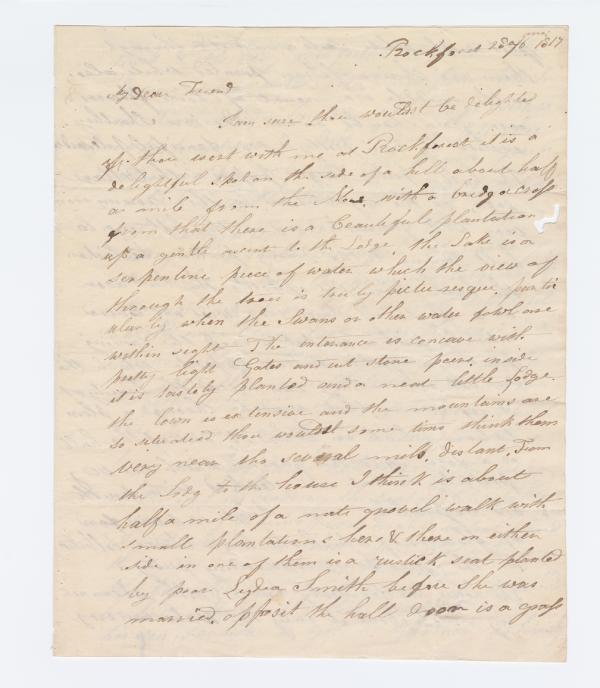 Rockforest 28 1817
My Dear Friend
I am sure thou wouldst be delighted
if thou wert with me at Rockforest it is a
delightful spot on the side of a hill about half
a mile from the with a bridg across
from that there is a beautiful plantation
up a gentle ascent to the Lodge. the Lake is a
serpentine piece of water which the view of
through the trees is truly picturesque, partic
ularly when the Swans or other water fowl are
within sight The enterance is concave with
pretty light Gates and cut stone peers, inside
it is tastely planted and a neat little lodge.
the lawn is extensive and the mountains are
so situated thou wouldst some times think them
very near tho several mils. distant. From
the Lodg to the house I think is about
half a mile of a nate gravel walk with
small plantations here & there on either
side in one of them is a rustick seat planted
by poor Lydea Smith before she was
married. opposit the hall door is a grass